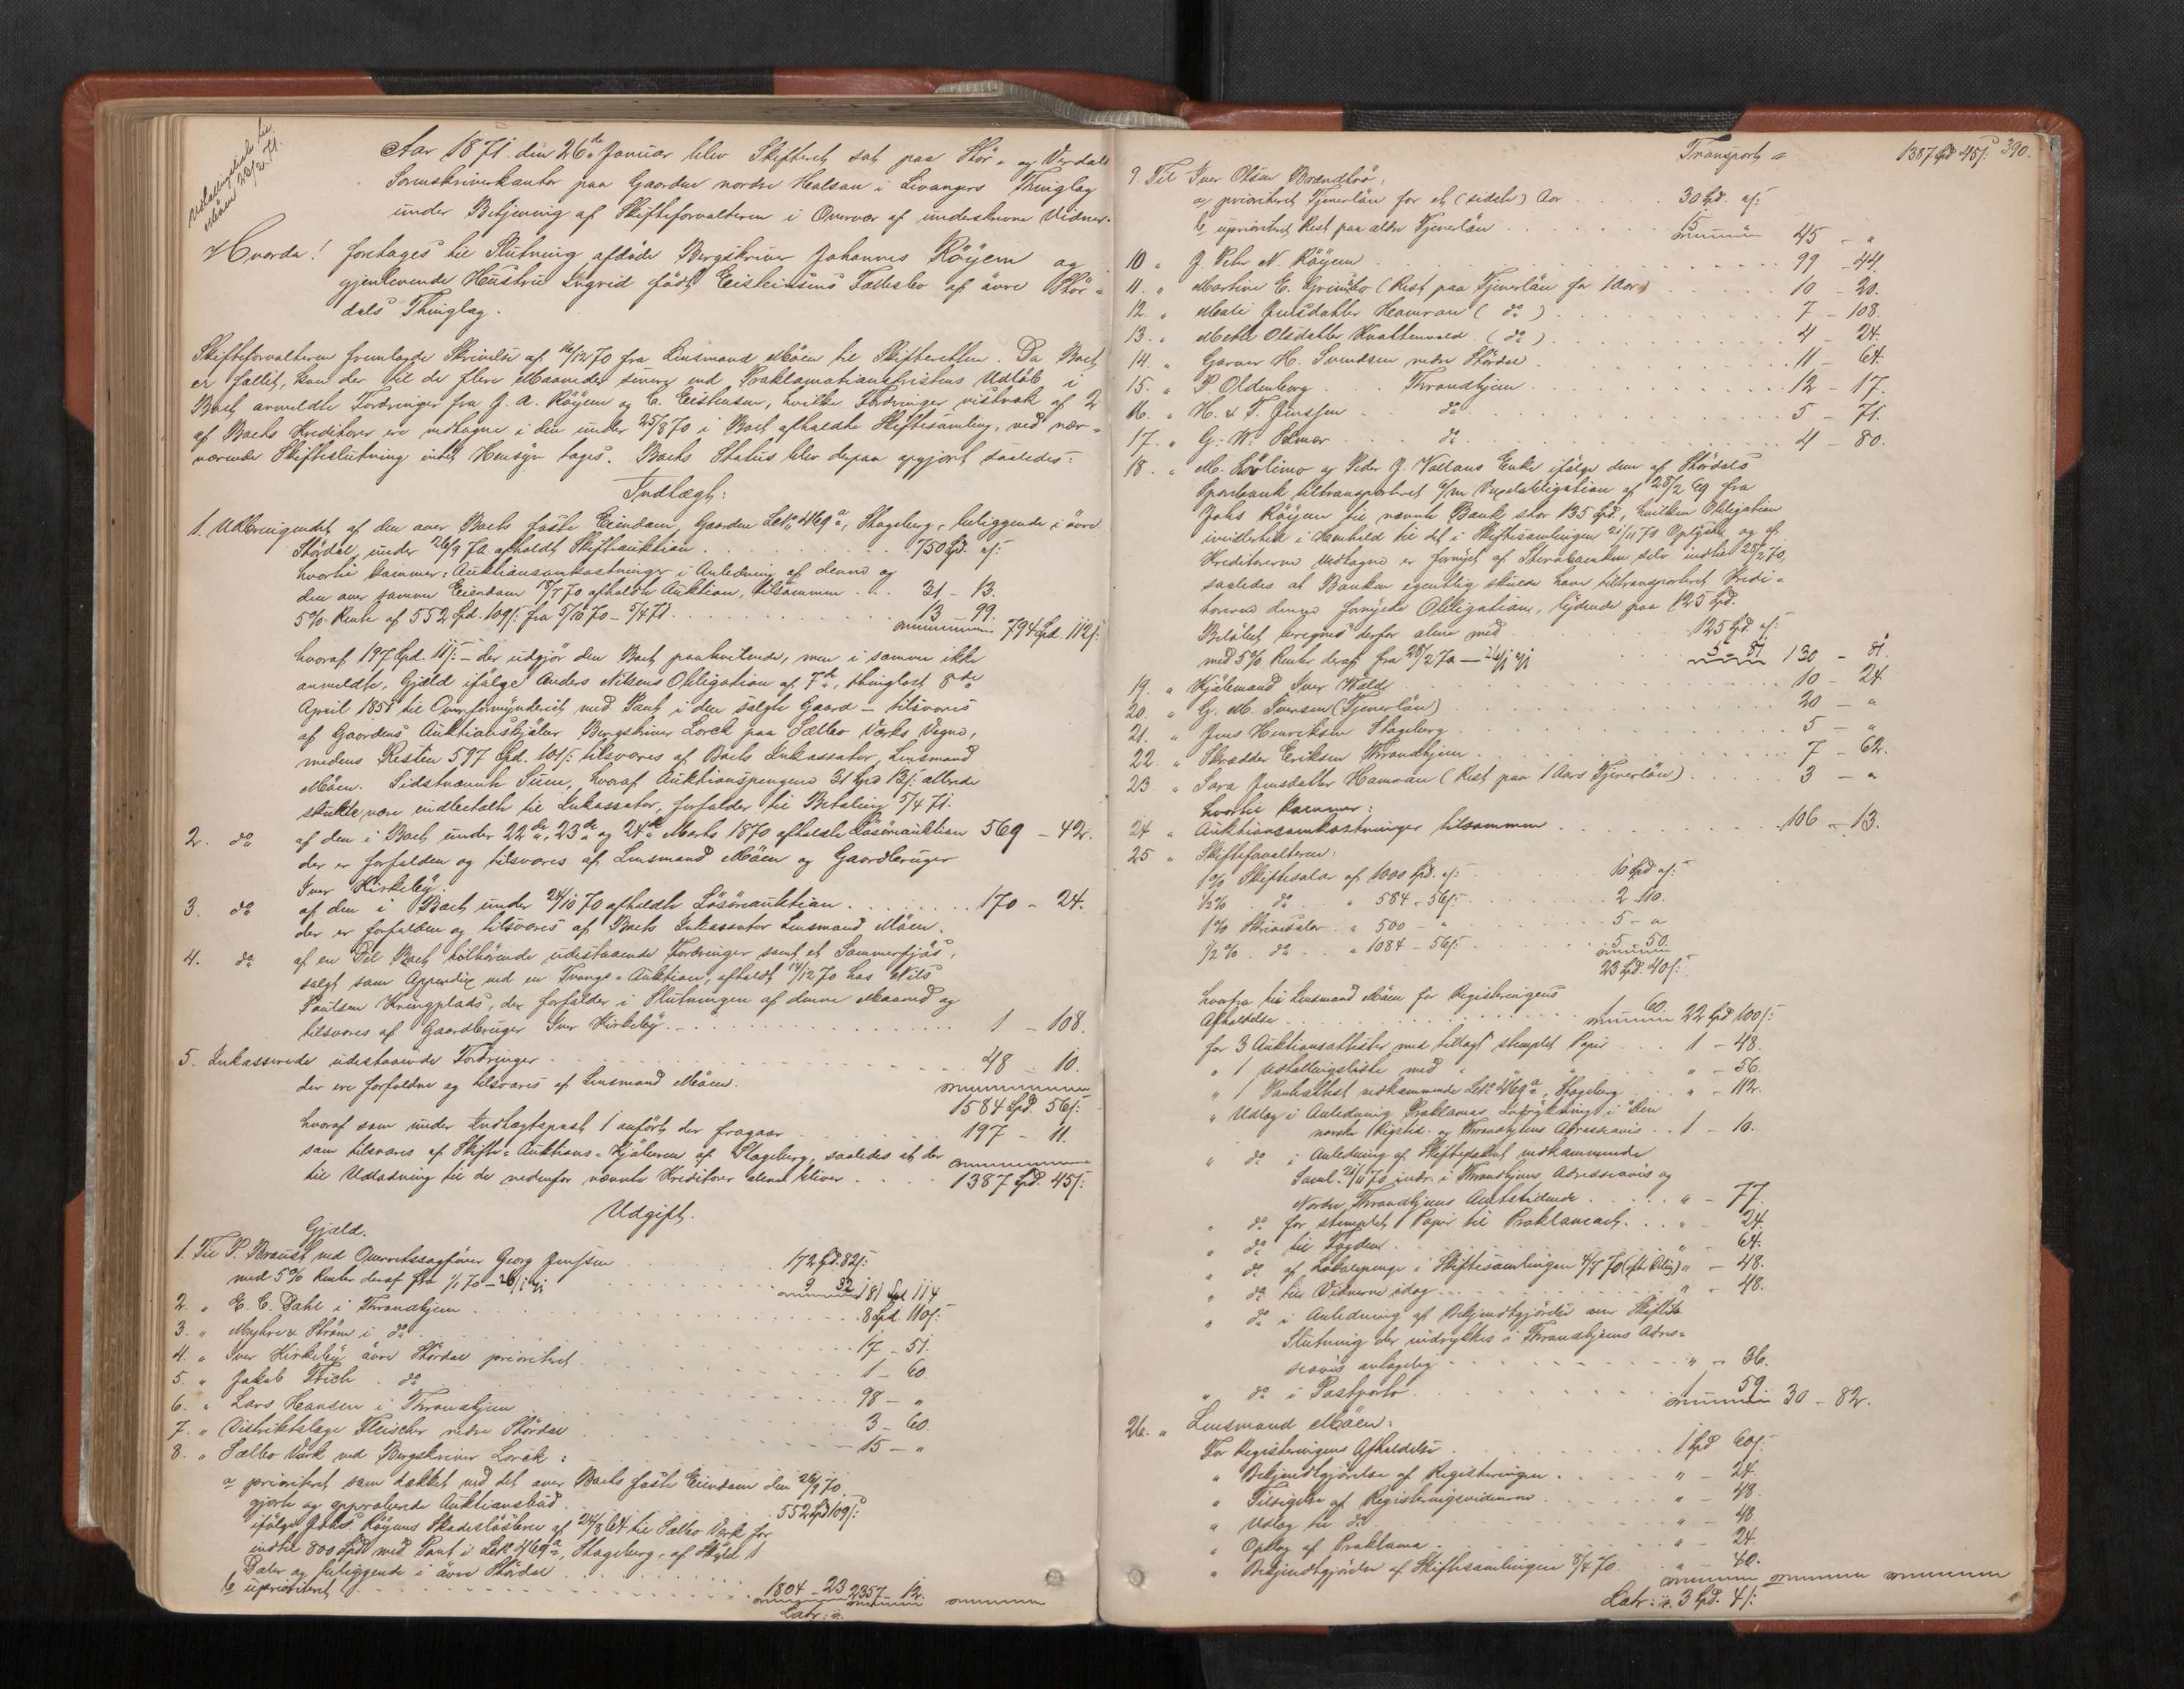 Aar 1871 den 26de Januar blev Skifteret sat paa Stør- og Verdals
Sorenskriverkontor paa Gaarden nordre Halsan i Levangers Thinglag
under Betjening af Skifteforvalteren i Overvær af underskrevne Vidner.
Hvorda! foretages til Slutning afdøde Bergskriver Johannes Røyem og
gjenlevende Hustru Ingrid født Eisteinsens Fællesbo af øvre Stør-
dals Thinglag.
Skifteforvalteren fremlagde Skrivelse af 16/12 70 fra Lensmand Moen til Skifteretten. Da Boet
er fallit, kan der til de flere Maaneder senere end Proklamationsfristens Udløb i
Boet anmeldte Fordringer fra J. A. Røyem og E. Eisteinsen, hvilke Fordringer vistnok af 2
af Boets Kreditorer ere vedtagne i den under 25/8 70 i Boet afholdte Skiftesamling, ved nær-
værende Skifteslutning intet Hensyn tages. Boets Status blev derpaa opgjort saaledes:
Indtægt:
1. Udbringendet af den over Boets faste Eiendom, Gaarden Lb. No 469a, Stageberg, beliggende i øvre
Størdal, under 26/9 70 afholdt Skifteauktion . . . 750 Spd. " s:
hvortil kommer: Auktionsomkostninger i Anledning af denne og
den over samme Eiendom 8/7 70 afholdte Auktion, tilsammen . . 31 - 13.
5% Rente af 552 Spd. 109 s: fra 5/10 70 - 5/4 71. . . . 13 99.
794 Spd. 112 s:
hvoraf 197 Spd. 11 s: - der udgjør den Boet paahvilende, men i samme ikke
anmeldte, Gjæld ifølge Anders Nilsens Obligation af 7de, thinglæst 8de
April 1851 til Overformynderiet med Pant i den solgte Gaard - tilsvares
af Gaardens Auktionskjøber Bergskriver Lorck paa Sælbo Værks Vegne,
medens Resten 597 Spd. 101 s: tilsvares af Boets Inkassator, Lensmand
Moen. Sidstnævnte Sum, hvoraf Auktionspengene 31 Spd 13 s: allerede
skulde være indbetalte til Inkassator, forfalder til Betaling 5/4 71.
2. do af den i Boet under 22de, 23de og 24de Marts 1870 afholdte Løsøreauktion 569 - 42.
der er forfalden og tilsvares af Lensmand Moen og Gaardbruger
Iver Kirkeby.
3. do af den i Boet under 24/10 70 afholdte Løsøreauktion . . . 170 - 24.
der er forfalden og tilsvares af Boets Inkassator Lensmand Moen.
4. do af en Del Boet tilhørende udestaaende Fordringer samt et Sommerfjøs,
solgt som Appendix ved en Tvangs-Auktion, afholdt 14/12 70 hos Nils
Paulsen Kringplads, der forfalder i Slutningen af denne Maaned og
tilsvares af Gaardbruger Iver Kirkeby . . . 1 - 108.
5. Inkasserede udestaaende Fordringer . . . 48 - 10.
der ere forfaldne og tilsvares af Lensmand Moen.
1584 Spd. 56 s:
hvoraf som under Indtægtspost 1 anført der fragaar . . . 197 - 11.
som tilsvares af Skifte-Auktions-Kjøberen af Stageberg, saaledes at der
til Udlodning til de nedenfor nævnte Kreditorer alene bliver . . . 1387 Spd. 45 s:
Udgift.
Gjæld.
1. Til P. Bransk ved Overretssagfører Georg Jenssen . . . 172 Spd. 82 s:
med 5% Renter deraf fra 1/1 70 - 26/1 71 9 32 181 Spd 114
2. " E. C. Dahl i Throndhjem . . . 8 Spd. 110 s:
3. " Myhre & Strøm i do . . . 17 - 51.
4. " Iver Kirkeby øvre Størdal prioriteret . . . 1 - 60.
5. " Jakob Fich do . . . 98 - "
6. " Lars Hansen i Throndhjem . . . 3 - 60.
7. " Distriktslæge Fleischer nedre Størdal . . . 15 - "
8. " Sælbo Værk ved Bergskriver Lorck:
a prioriteret som dækket ved det over Boets faste Eiendom den 26/9 70
gjorte og approberede Auktionsbud . . . 552 Spd 109 s:
ifølge Johs Røyems Skadesløsbrev af 24/8 64 til Sælbo Værk for
indtil 800 Spd. med Pant i Lb. No 469a, Stageberg, af Skyld 1
Daler og beliggende i øvre Størdal
b uprioriteret . . . 1804 - 23 2357 - 12.
Latr:
Transport " 1387 Spd 45 s: 390.
9. Til Iver Olsen Brændhø:
a, prioriteret Tjenerløn for et (sidste) Aar . . . 30 Spd. " s:
b, uprioriteret Rest paa ældre Tjenerløn . . . 15 45 - "
10 " J. Peter N. Røyem . . . 99 - 44.
11. " Martine E. Grindbo (Rest paa Tjenerløn for 1 Aar) . . . 10 - 20.
12. " Mali Jensdatter Hamran (do) . . . 7 - 108.
13. " Mette Olsdatter Knattenvold (do) . . . 4 - 24.
14. " Garver H. Svendsen nedre Størdal . . . 11 - 64.
15. " P Oldenborg . Throndhjem . . . 12 - 17.
16. " H. & F. Jenssen - do . . . 5 - 71.
17. " G: W: Selmer . . do . . . 4 - 80.
18. " M. Støtimo og Peder J. Vollans Enke ifølge dem af Størdals
Sparebank tiltransporteret 6/m Vexelobligation af 28/2 69 fra
Johs Røyem til nævnte Bank stor 135 Spd., hvilken Obligation
imidlertid i Henhold til det i Skiftesamlingen 21/11 70 Oplyste og af
Kreditorerne Vedtagne er fornyet af Sterboenken selv indtil 28/2 70,
saaledes at Banken egentlig skulde have tiltransporteret Kredi-
torerne denne fornyede Obligation, lydende paa 125 Spd.
Beløbet beregnes derfor alene med . . . 125 Spd. " s:
med 5% Renter deraf fra 28/2 70 - 26/1 71 5 - 81 130 - 81.
19. " Kjøbmand Iver Wold . . . 10 - 24
20. " G. M. Iversen (Tjenerløn) . . . 20 - "
21. " Jens Henriksen Stageberg . . . 5 - "
22. " Skrædder Eriksen Throndhjem . . . 7 - 62.
23. " Sara Jensdatter Hamran (Rest paa 1 Aars Tjenerløn) . . . 3 - "
hvortil kommer:
24 " Auktionsomkostninger tilsammen . . . 106 - 13.
25 " Skifteforvalteren:
1% Skiftesalær af 1000 Spd. " s: . . . 10 Spd " s:
1/2% . do . " 584 - 56 s: . . . 2 110.
1% Skriversalær . " 500 - " . . . 5 - "
1/2% . do . . " 1084 - 56 s: . . . 5 50.
23 Spd. 40 s:
hvorfra til Lensmand Moen for Registreringens
Afholdelse . . . 1 60. 22 Spd 100 s:
for 3 Auktionsattester med tillagt stemplet Papir . . . 1 - 48.
" 1 Udlodningsliste med " " " . . . " - 56.
" 1 Panteattest vedkommende Lb. No 469a, Stageberg . . . " - 112.
" Udlæg i Anledning Proklamas Indrykning i den
norske Rigstid. og Throndhjems Adresseavis . . 1 - 10.
" do i Anledning af Skifteboet vedkommende
Saml. 21/11 70 indr. i Throndhjems Adresseavis og
Nordre Throndhjems Amtstidende . . . " - 77.
" do for stemplet Papir til Proklamaet. . . " - 24.
" do til Fogden . . . " - 64.
" do af Lokalepenge i Skiftesamlingen 4/7 70 (efter Bilag) " - 48.
" do til Vidnerne idag . . . " - 48.
" do i Anledning af Bekjendtgjørelse om Skiftets
Slutning der indrykkes i Throndhjems Adres-
seavis antagelig . . . " - 36.
" do i Postporto . . . 1 59. 30 - 82.
26. " Lensmand Moen:
For Registreringens Afholdelse . . . 1 Spd 60 s:
" Bekjendtgjørelse af Registreringen . . . " - 24.
" Tilsigelse af Registreringsvidnerne . . . " - 48.
" Udlæg til do . . . " - 48.
" Opslag af Proklama . . . " - 24.
" Bekjendtgjørelse af Skiftesamlingen 8/4 70 . . . " - 40.
Latr: " 3 Spd. 4 s: